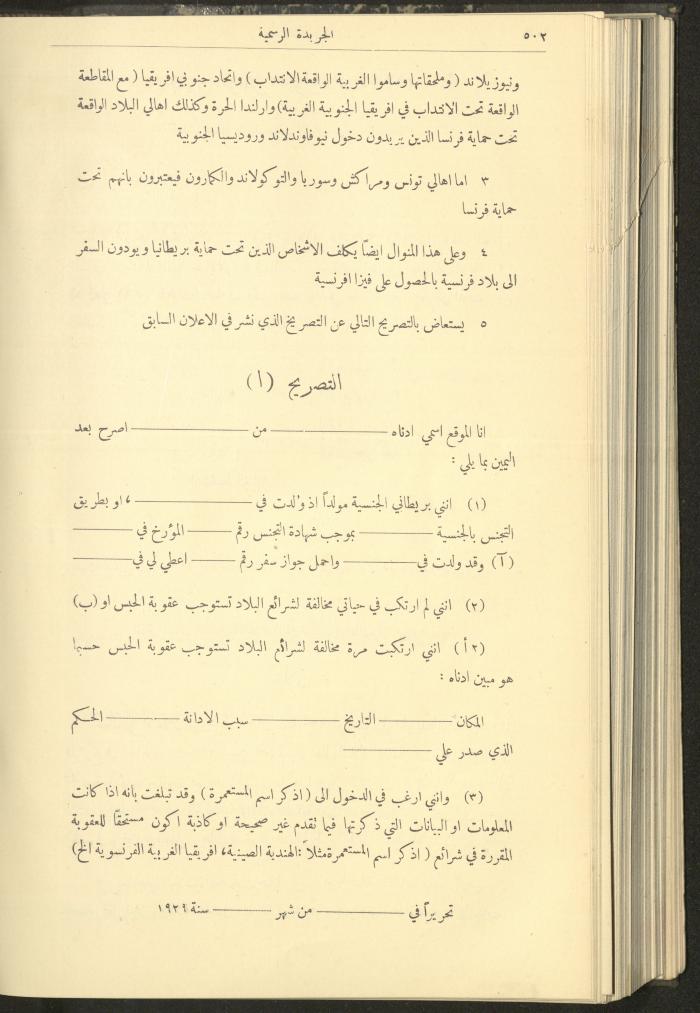 ٥٠٢ الجريدة الرسمية
ونيوزيلاند (وملحقاتها وساموا الغربية الواقعة الانتداب) واتحاد جنوبي افريقيا (مع المقاطعة
الواقعة تحت الانتداب في افريقيا الجنوبية الغربية) وارلندا الحرة وكذلك اهالي البلاد الواقعة
تحت حماية فرنسا الذين يريدون دخول نيوفاوندلاند وروديسيا الجنوبية
٣ اما اهالي تونس ومراكش وسوريا والتوكولاند والكمارون فيعتبرون بانهم تحت
حماية فرنسا
٤ وعلى هذا المنوال ايضًا يكلف الاشخاص الذين تحت حماية بريطانيا ويودون السفر
الى بلاد فرنسية بالحصول على فيزا افرنسية
٥ يستعاض بالتصريح التالي عن التصريح الذي نشر في الاعلان السابق
التصريح (ا)
انا الموقع اسمي ادناه ــــــــ من ــــــــ اصرح بعد
اليمين بما يلي :
(١) انني بريطاني الجنسية مولداً اذ ولدت في ــــــــ ، او بطريق
التجنس بالجنسية ــــــــ بموجب شهادة التجنس رقم ــــــــ المؤرخ في ــــــــ
(آ) وقد ولدت في ــــــــ واحمل جواز سفر رقم ــــــــ اعطي لي في ــــــــ
(٢) انني لم ارتكب في حياتي مخالفة لشرائع البلاد تستوجب عقوبة الحبس او (ب)
(٢أ) انني ارتكبت مرة مخالفة لشرائع البلاد تستوجب عقوبة الحبس حسبما
هو مبين ادناه :
المكان ــــــــ التاريخ ــــــــ سبب الادانة ــــــــ الحكم
الذي صدر علي ــــــــ
(٣) وانني ارغب في الدخول الى (اذكر اسم المستعمرة) وقد تبلغت بانه اذا كانت
المعلومات او البيانات التي ذكرتها فيما تقدم غير صحيحة او كاذبة اكون مستحقًا للعقوبة
المقررة في شرائع (اذكر اسم المستعمرة مثلاً : الهندية الصينية، افريقيا الغربية الفرنسوية الخ)
تحريراً في ــــــــ من شهر ــــــــ سنة ١٩٢٩